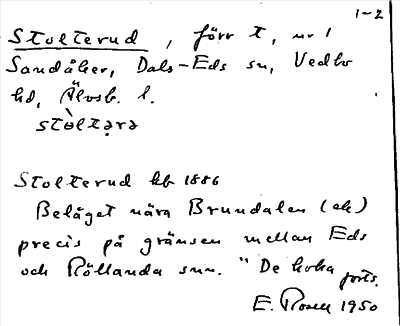 1-2
Stolterud, förr t, nr 1
Sandåker, Dals-Eds sn, Vedbo
hd, Älvsb. l.
stòltəra
Stolterud kb 1886
Beläget nära Brundalen (ek)
precis på gränsen mellan Eds
och Röllanda snn. "De
forts.
E. Rosell 1950